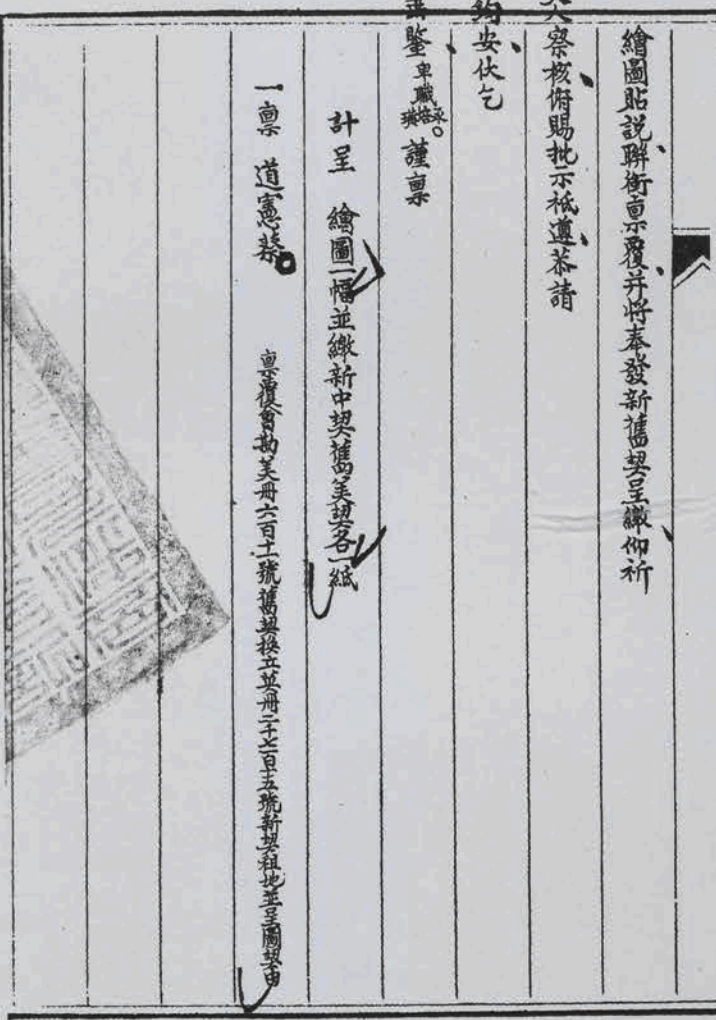 繪圖貼説聯銜稟覆并將奉發新舊契呈繳仰祈
察核俯賜批示祗遵恭請
鈞安伏乞
鑒卑職謹稟
計呈 繪圖一幅並繳新中契舊美契各一紙
一稟 道憲蔡 稟覆會勘美册六百十一號舊契換立英册二千七百五號新契租地並呈圖契由